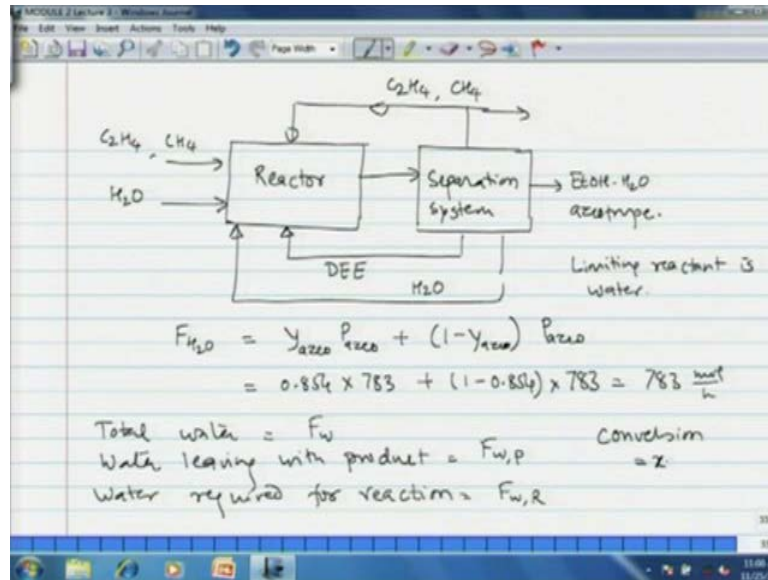 MODULE 2 Lecture 3 - Windows Journal
File Edit View Insert Actions Tools Help
Page Width
C2H4, CH4
C2H4, CH4
H2O
Reactor
Separation
system
EtOH-H2O
azeotrope.
DEE
H2O
Limiting reactant is
water.
F_H2O = y_azeo P_azeo + (1-y_azeo) P_azeo
= 0.854 x 783 + (1-0.854) x 783 = 783 mol/h
Total water = Fw
Water leaving with product = Fw,P
Conversion
= x.
Water required for reaction = Fw,R
11:08